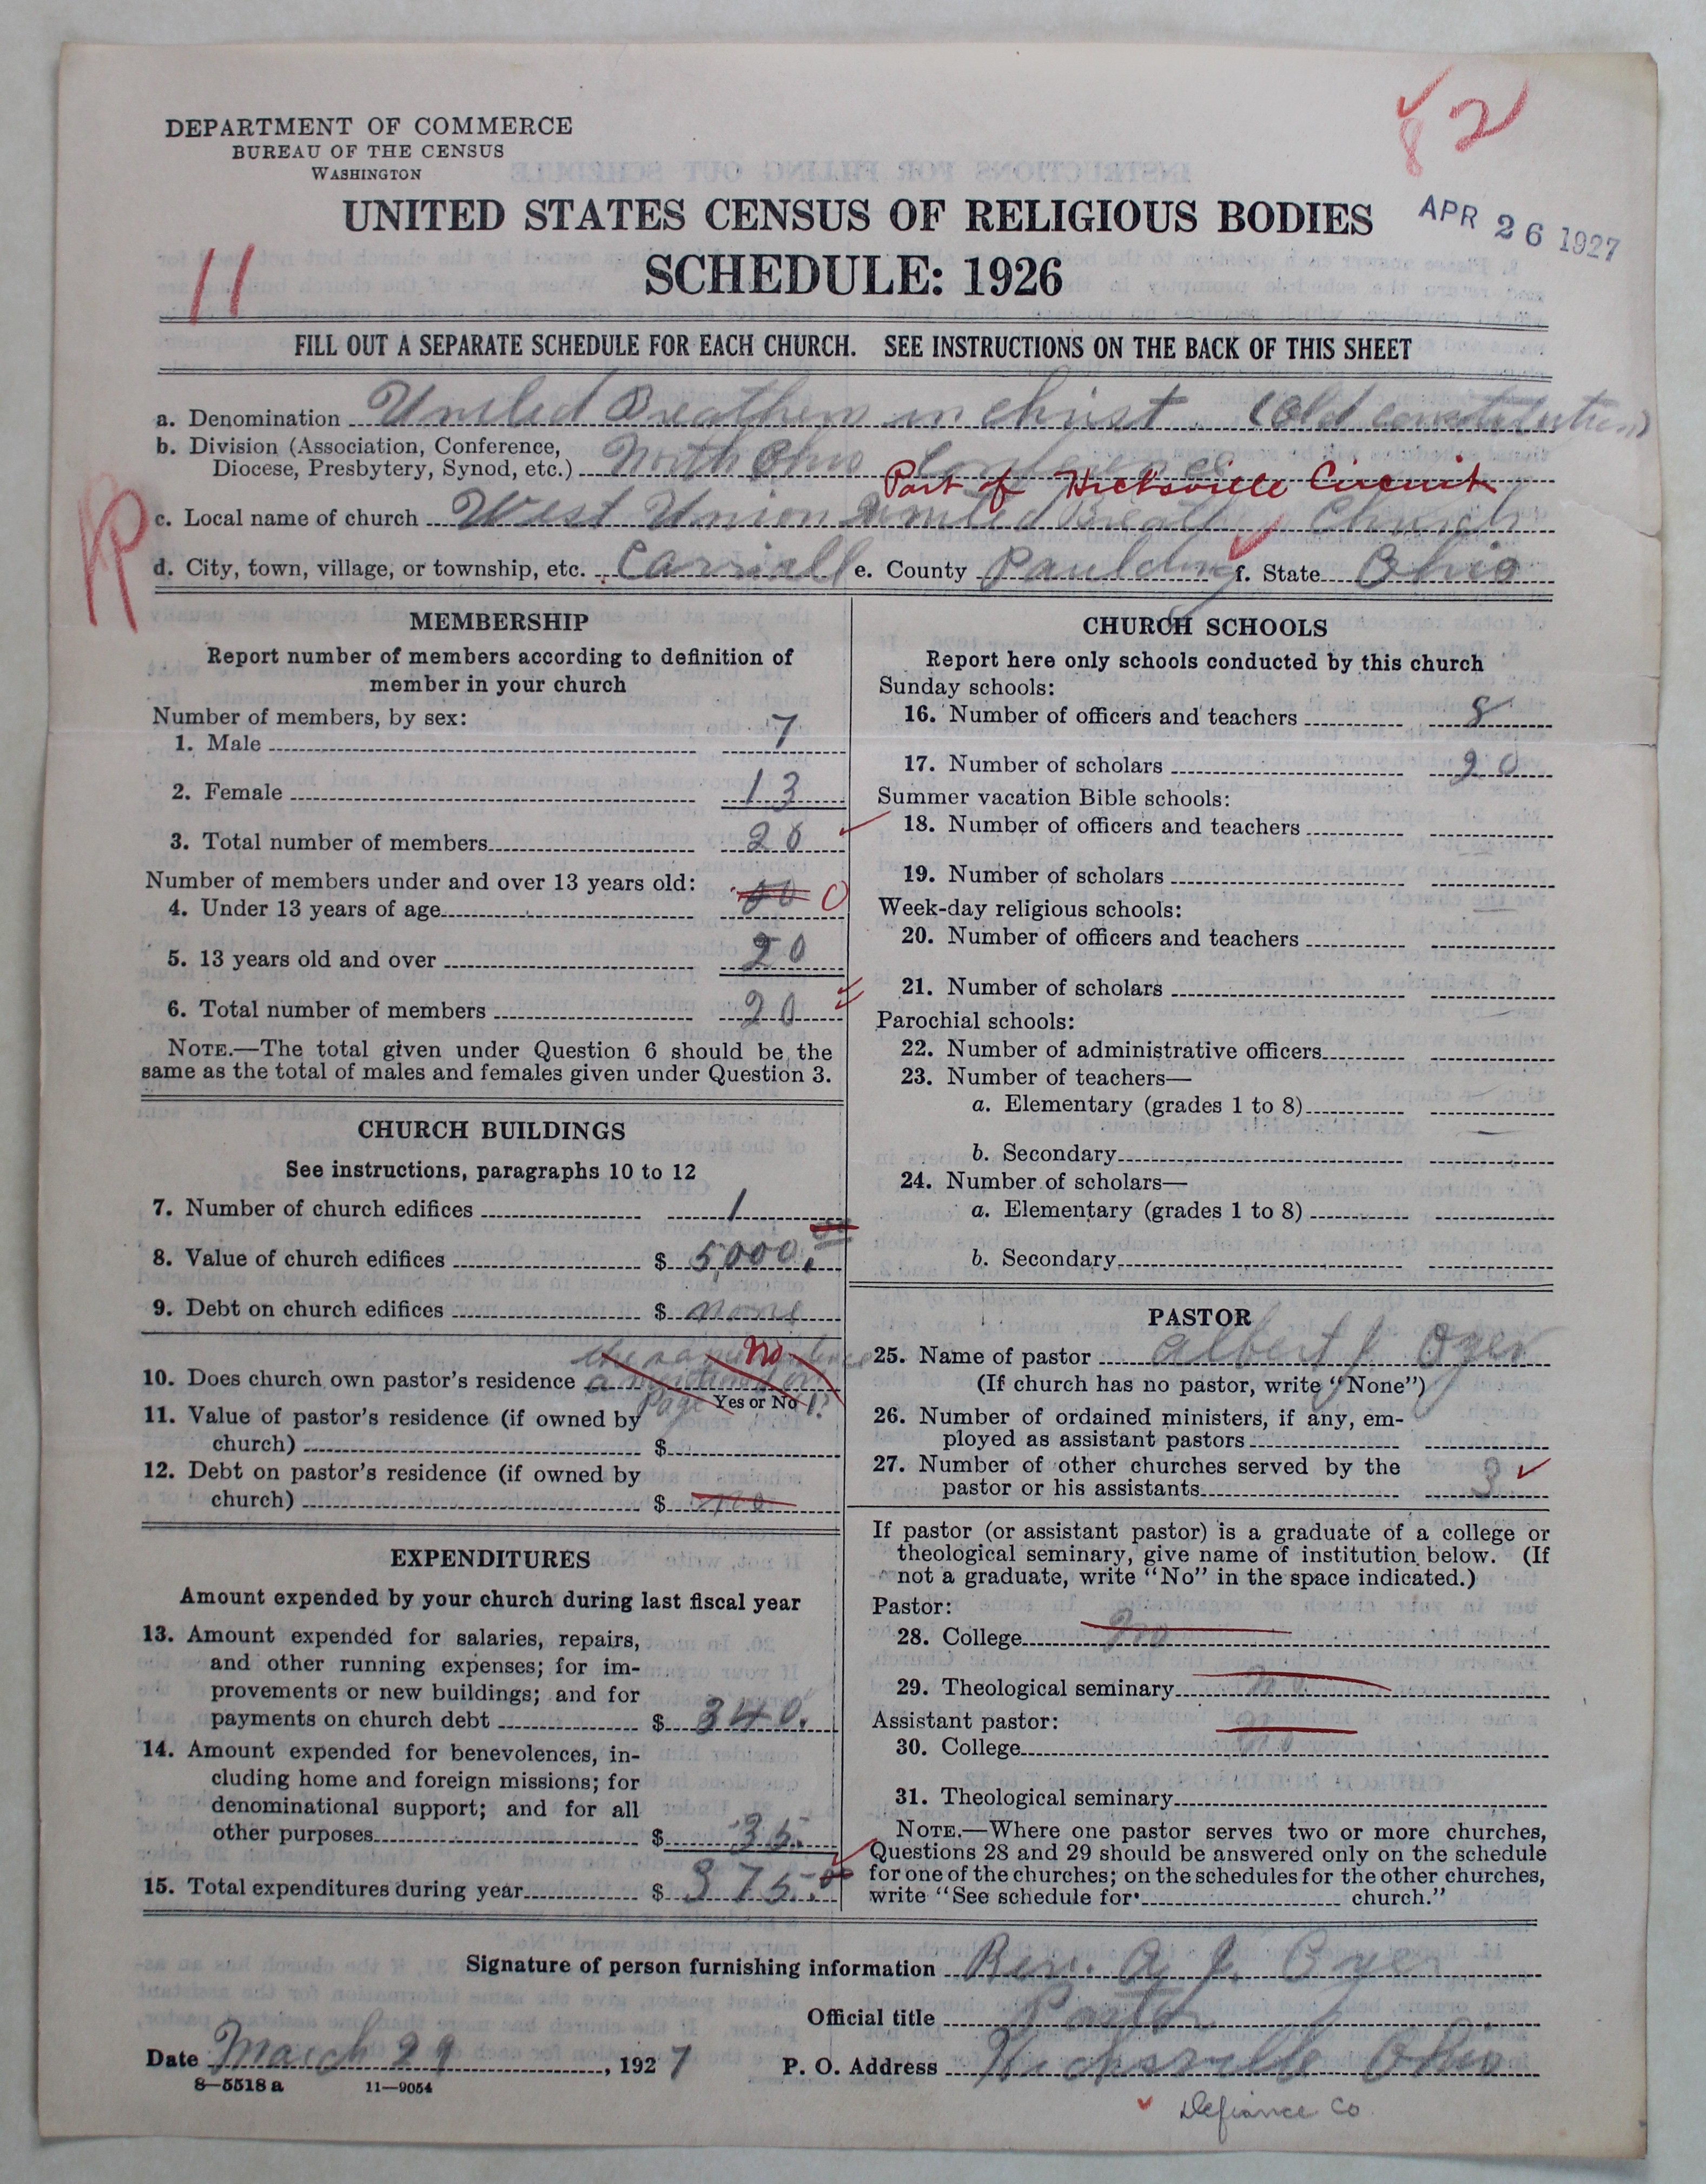 82
DEPARTMENT OF COMMERCE
BUREAU OF THE CENSUS
WASHINGTON
UNITED STATES CENSUS OF RELIGIOUS BODIES
APR 26 1927
SCHEDULE: 1926
11
FILL OUT A SEPARATE SCHEDULE FOR EACH CHURCH. SEE INSTRUCTIONS ON THE BACK OF THIS SHEET
a. Denomination United Breathern in Christ. (Old constitution)
b. Division (Association, Conference,
Diocese, Presbytery, Synod, etc.) North Ohio Conference
Part of Hicksville Circuit
c. Local name of church West Union United Breath Church
d. City, town, village, or township, etc. Carriall e. County Paulding f. State Ohio
MEMBERSHIP
Report number of members according to definition of
member in your church
Number of members, by sex:
1. Male 7
2. Female 13
3. Total number of members 20
Number of members under and over 13 years old:
4. Under 13 years of age 00 0
5. 13 years old and over 20
6. Total number of members 20
NOTE.—The total given under Question 6 should be the
same as the total of males and females given under Question 3.
CHURCH BUILDINGS
See instructions, paragraphs 10 to 12
7. Number of church edifices 1
8. Value of church edifices $ 5000.00
9. Debt on church edifices $ none
10. Does church own pastor's residence No
Yes or No
11. Value of pastor's residence (if owned by
church) $
12. Debt on pastor's residence (if owned by
church) $ no
EXPENDITURES
Amount expended by your church during last fiscal year
13. Amount expended for salaries, repairs,
and other running expenses; for im-
provements or new buildings; and for
payments on church debt $ 340.
14. Amount expended for benevolences, in-
cluding home and foreign missions; for
denominational support; and for all
other purposes $ 35.
15. Total expenditures during year $ 375.00
CHURCH SCHOOLS
Report here only schools conducted by this church
Sunday schools:
16. Number of officers and teachers 8
17. Number of scholars 20
Summer vacation Bible schools:
18. Number of officers and teachers
19. Number of scholars
Week-day religious schools:
20. Number of officers and teachers
21. Number of scholars
Parochial schools:
22. Number of administrative officers
23. Number of teachers—
a. Elementary (grades 1 to 8)
b. Secondary
24. Number of scholars—
a. Elementary (grades 1 to 8)
b. Secondary
PASTOR
25. Name of pastor Albert J Oyer
(If church has no pastor, write "None")
26. Number of ordained ministers, if any, em-
ployed as assistant pastors
27. Number of other churches served by the
pastor or his assistants 3
If pastor (or assistant pastor) is a graduate of a college or
theological seminary, give name of institution below. (If
not a graduate, write "No" in the space indicated.)
Pastor:
28. College no
29. Theological seminary no
Assistant pastor:
30. College no
31. Theological seminary
NOTE.—Where one pastor serves two or more churches,
Questions 28 and 29 should be answered only on the schedule
for one of the churches; on the schedules for the other churches,
write "See schedule for church."
Signature of person furnishing information Rev. A J. Oyer
Official title Pastor
Date March 29, 1927 P. O. Address Hicksville Ohio
8—5518 a 11—9054
Defiance Co